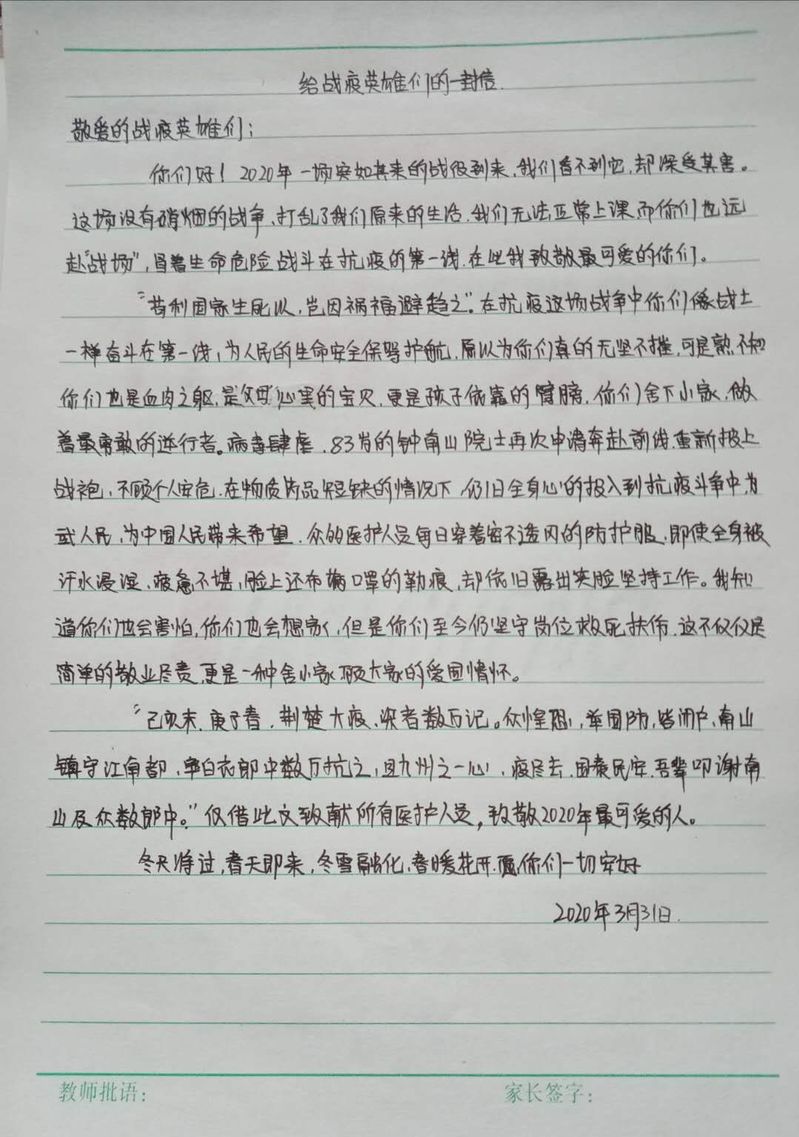 给战疫英雄们的一封信.
敬爱的战疫英雄们:
你们好! 2020年一场突如其来的战役到来,我们看不到它,却深受其害。
这场没有硝烟的战争,打乱了我们原来的生活.我们无法正常上课而你们也远
赴"战场",冒着生命危险战斗在抗疫的第一线.在此我致敬最可爱的你们。
"苟利国家生死以,岂因祸福避趋之".在抗疫这场战争中你们像战士
一样奋斗在第一线,为人民的生命安全保驾护航,原以为你们真的无坚不摧,可是熟不知
你们也是血肉之躯,是父母心里的宝贝,更是孩子依靠的臂膀.你们舍下小家,做
着最勇敢的逆行者。病毒肆虐.83岁的钟南山院士再次申请奔赴前线.重新披上
战袍,不顾个人安危.在物质药品短缺的情况下,仍旧全身心的投入到抗疫斗争中,为
武人民,为中国人民带来希望.众的医护人员每日穿着密不透风的防护服,即使全身被
汗水浸湿、疲惫不堪,脸上还布满口罩的勒痕,却依旧露出笑脸坚持工作。我知
道你们也会害怕,你们也会想家,但是你们至今仍坚守岗位救死扶伤.这不仅仅是
简单的敬业尽责,更是一种舍小家顾大家的爱国情怀。
"己亥末.庚子春.荆楚大疫、染者数万记。众惶恐,举国防,皆闭户,南山
镇守江南都,率白衣郎中数万抗之,且九州之一心,疫尽去.国泰民安.吾辈叩谢南
山及众数郎中。"仅借此文致献所有医护人员,致敬2020年最可爱的人。
冬天将过,春天即来,冬雪融化,春暖花开.愿你们一切安好
2020年3月31日.
教师批语:
家长签字: